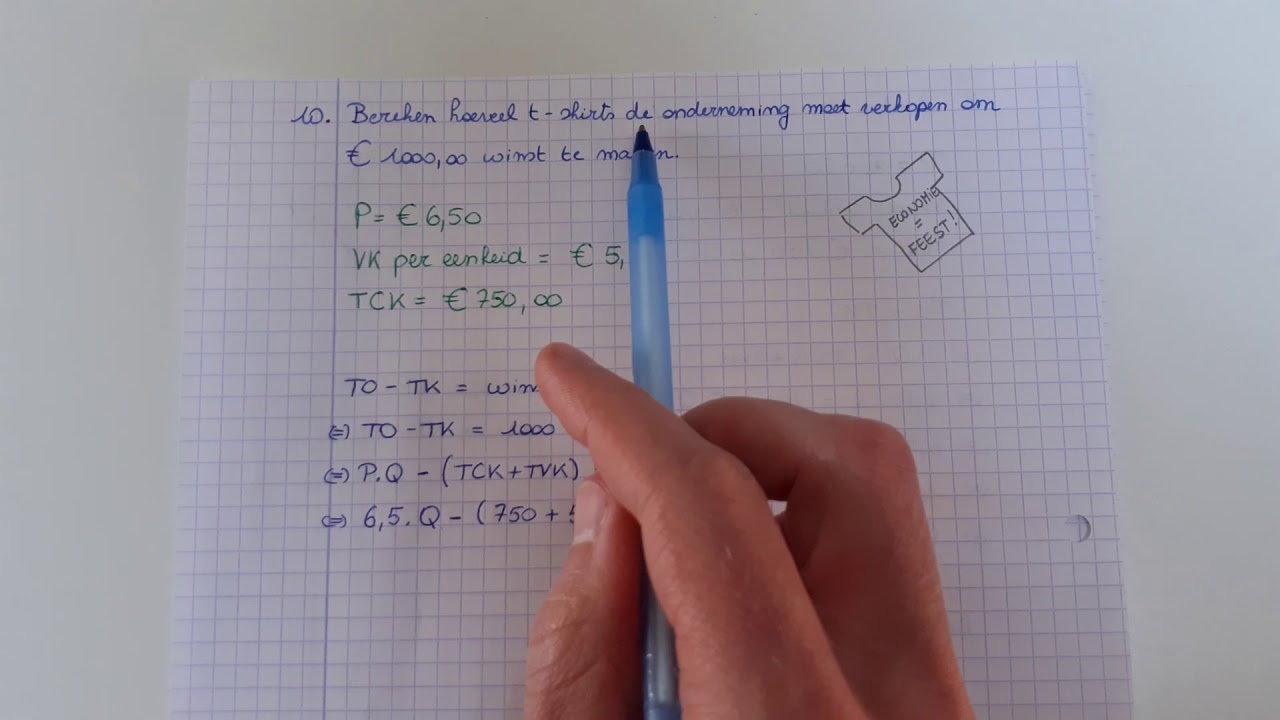 10. Bereken hoeveel t-shirts de onderneming moet verkopen om
€ 1000,00 winst te
P = € 6,50
VK per eenheid = € 5,
TCK = € 750,00
ECONOMIE
=
FEEST!
TO - TK =
⇔ TO - TK = 1000
⇔ P.Q - (TCK + TVK)
⇔ 6,5.Q - (750 +